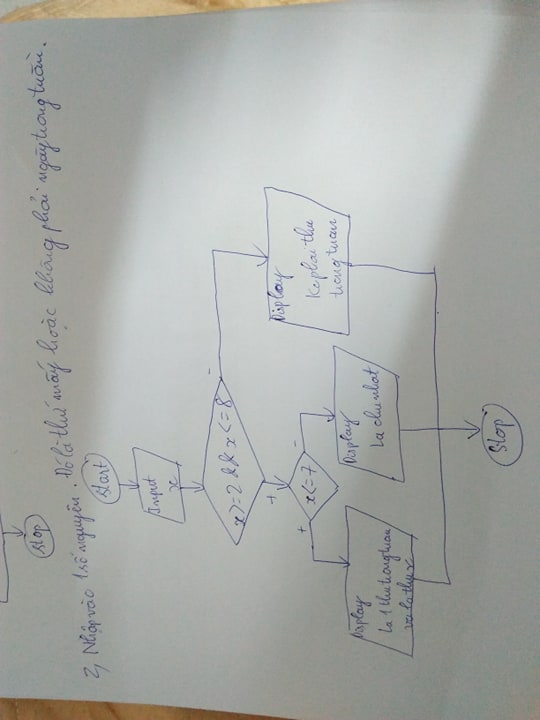 Stop
2, Nhập vào 1 số nguyên. Đó là thứ mấy hoặc không phải ngày trong tuần.
Start
Input
x
x >= 2 && x <= 8
+
-
x <= 7
+
-
Display
la 1 thu trong tuan
va la thu x
Display
la chu nhat
Display
K phai thu
trong tuan
Stop